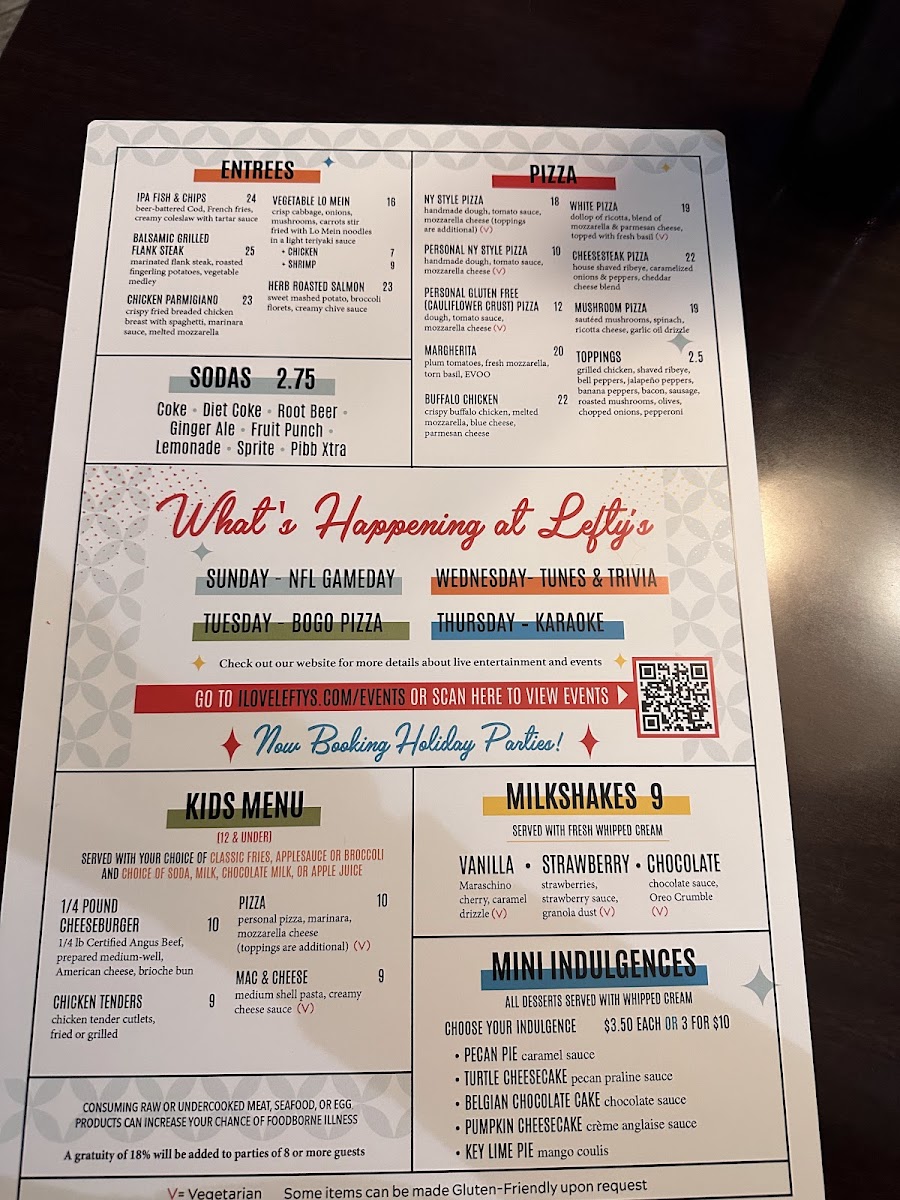 ENTREES
IPA FISH & CHIPS 24
beer-battered Cod, French fries,
creamy coleslaw with tartar sauce
BALSAMIC GRILLED
FLANK STEAK 25
marinated flank steak, roasted
fingerling potatoes, vegetable
medley
CHICKEN PARMIGIANO 23
crispy fried breaded chicken
breast with spaghetti, marinara
sauce, melted mozzarella
VEGETABLE LO MEIN 16
crisp cabbage, onions,
mushrooms, carrots stir
fried with Lo Mein noodles
in a light teriyaki sauce
+ CHICKEN 7
+ SHRIMP 9
HERB ROASTED SALMON 23
sweet mashed potato, broccoli
florets, creamy chive sauce
PIZZA
NY STYLE PIZZA 18
handmade dough, tomato sauce,
mozzarella cheese (toppings
are additional) (V)
PERSONAL NY STYLE PIZZA 10
handmade dough, tomato sauce,
mozzarella cheese (V)
PERSONAL GLUTEN FREE
(CAULIFLOWER CRUST) PIZZA 12
dough, tomato sauce,
mozzarella cheese (V)
MARGHERITA 20
plum tomatoes, fresh mozzarella,
torn basil, EVOO
BUFFALO CHICKEN 22
crispy buffalo chicken, melted
mozzarella, blue cheese,
parmesan cheese
WHITE PIZZA 19
dollop of ricotta, blend of
mozzarella & parmesan cheese,
topped with fresh basil (V)
CHEESESTEAK PIZZA 22
house shaved ribeye, caramelized
onions & peppers, cheddar
cheese blend
MUSHROOM PIZZA 19
sautéed mushrooms, spinach,
ricotta cheese, garlic oil drizzle
TOPPINGS 2.5
grilled chicken, shaved ribeye,
bell peppers, jalapeño peppers,
banana peppers, bacon, sausage,
roasted mushrooms, olives,
chopped onions, pepperoni
SODAS 2.75
Coke • Diet Coke • Root Beer •
Ginger Ale • Fruit Punch •
Lemonade • Sprite • Pibb Xtra
What's Happening at Lefty's
SUNDAY - NFL GAMEDAY
WEDNESDAY- TUNES & TRIVIA
TUESDAY - BOGO PIZZA
THURSDAY - KARAOKE
Check out our website for more details about live entertainment and events
GO TO ILOVELEFTYS.COM/EVENTS OR SCAN HERE TO VIEW EVENTS
Now Booking Holiday Parties!
KIDS MENU
(12 & UNDER)
SERVED WITH YOUR CHOICE OF CLASSIC FRIES, APPLESAUCE OR BROCCOLI
AND CHOICE OF SODA, MILK, CHOCOLATE MILK, OR APPLE JUICE
1/4 POUND
CHEESEBURGER 10
1/4 lb Certified Angus Beef,
prepared medium-well,
American cheese, brioche bun
CHICKEN TENDERS 9
chicken tender cutlets,
fried or grilled
PIZZA 10
personal pizza, marinara,
mozzarella cheese
(toppings are additional) (V)
MAC & CHEESE 9
medium shell pasta, creamy
cheese sauce (V)
CONSUMING RAW OR UNDERCOOKED MEAT, SEAFOOD, OR EGG
PRODUCTS CAN INCREASE YOUR CHANCE OF FOODBORNE ILLNESS
A gratuity of 18% will be added to parties of 8 or more guests
MILKSHAKES 9
SERVED WITH FRESH WHIPPED CREAM
VANILLA • STRAWBERRY • CHOCOLATE
Maraschino
cherry, caramel
drizzle (V)
strawberries,
strawberry sauce,
granola dust (V)
chocolate sauce,
Oreo Crumble
(V)
MINI INDULGENCES
ALL DESSERTS SERVED WITH WHIPPED CREAM
CHOOSE YOUR INDULGENCE $3.50 EACH OR 3 FOR $10
• PECAN PIE caramel sauce
• TURTLE CHEESECAKE pecan praline sauce
• BELGIAN CHOCOLATE CAKE chocolate sauce
• PUMPKIN CHEESECAKE crème anglaise sauce
• KEY LIME PIE mango coulis
V= Vegetarian Some items can be made Gluten-Friendly upon request